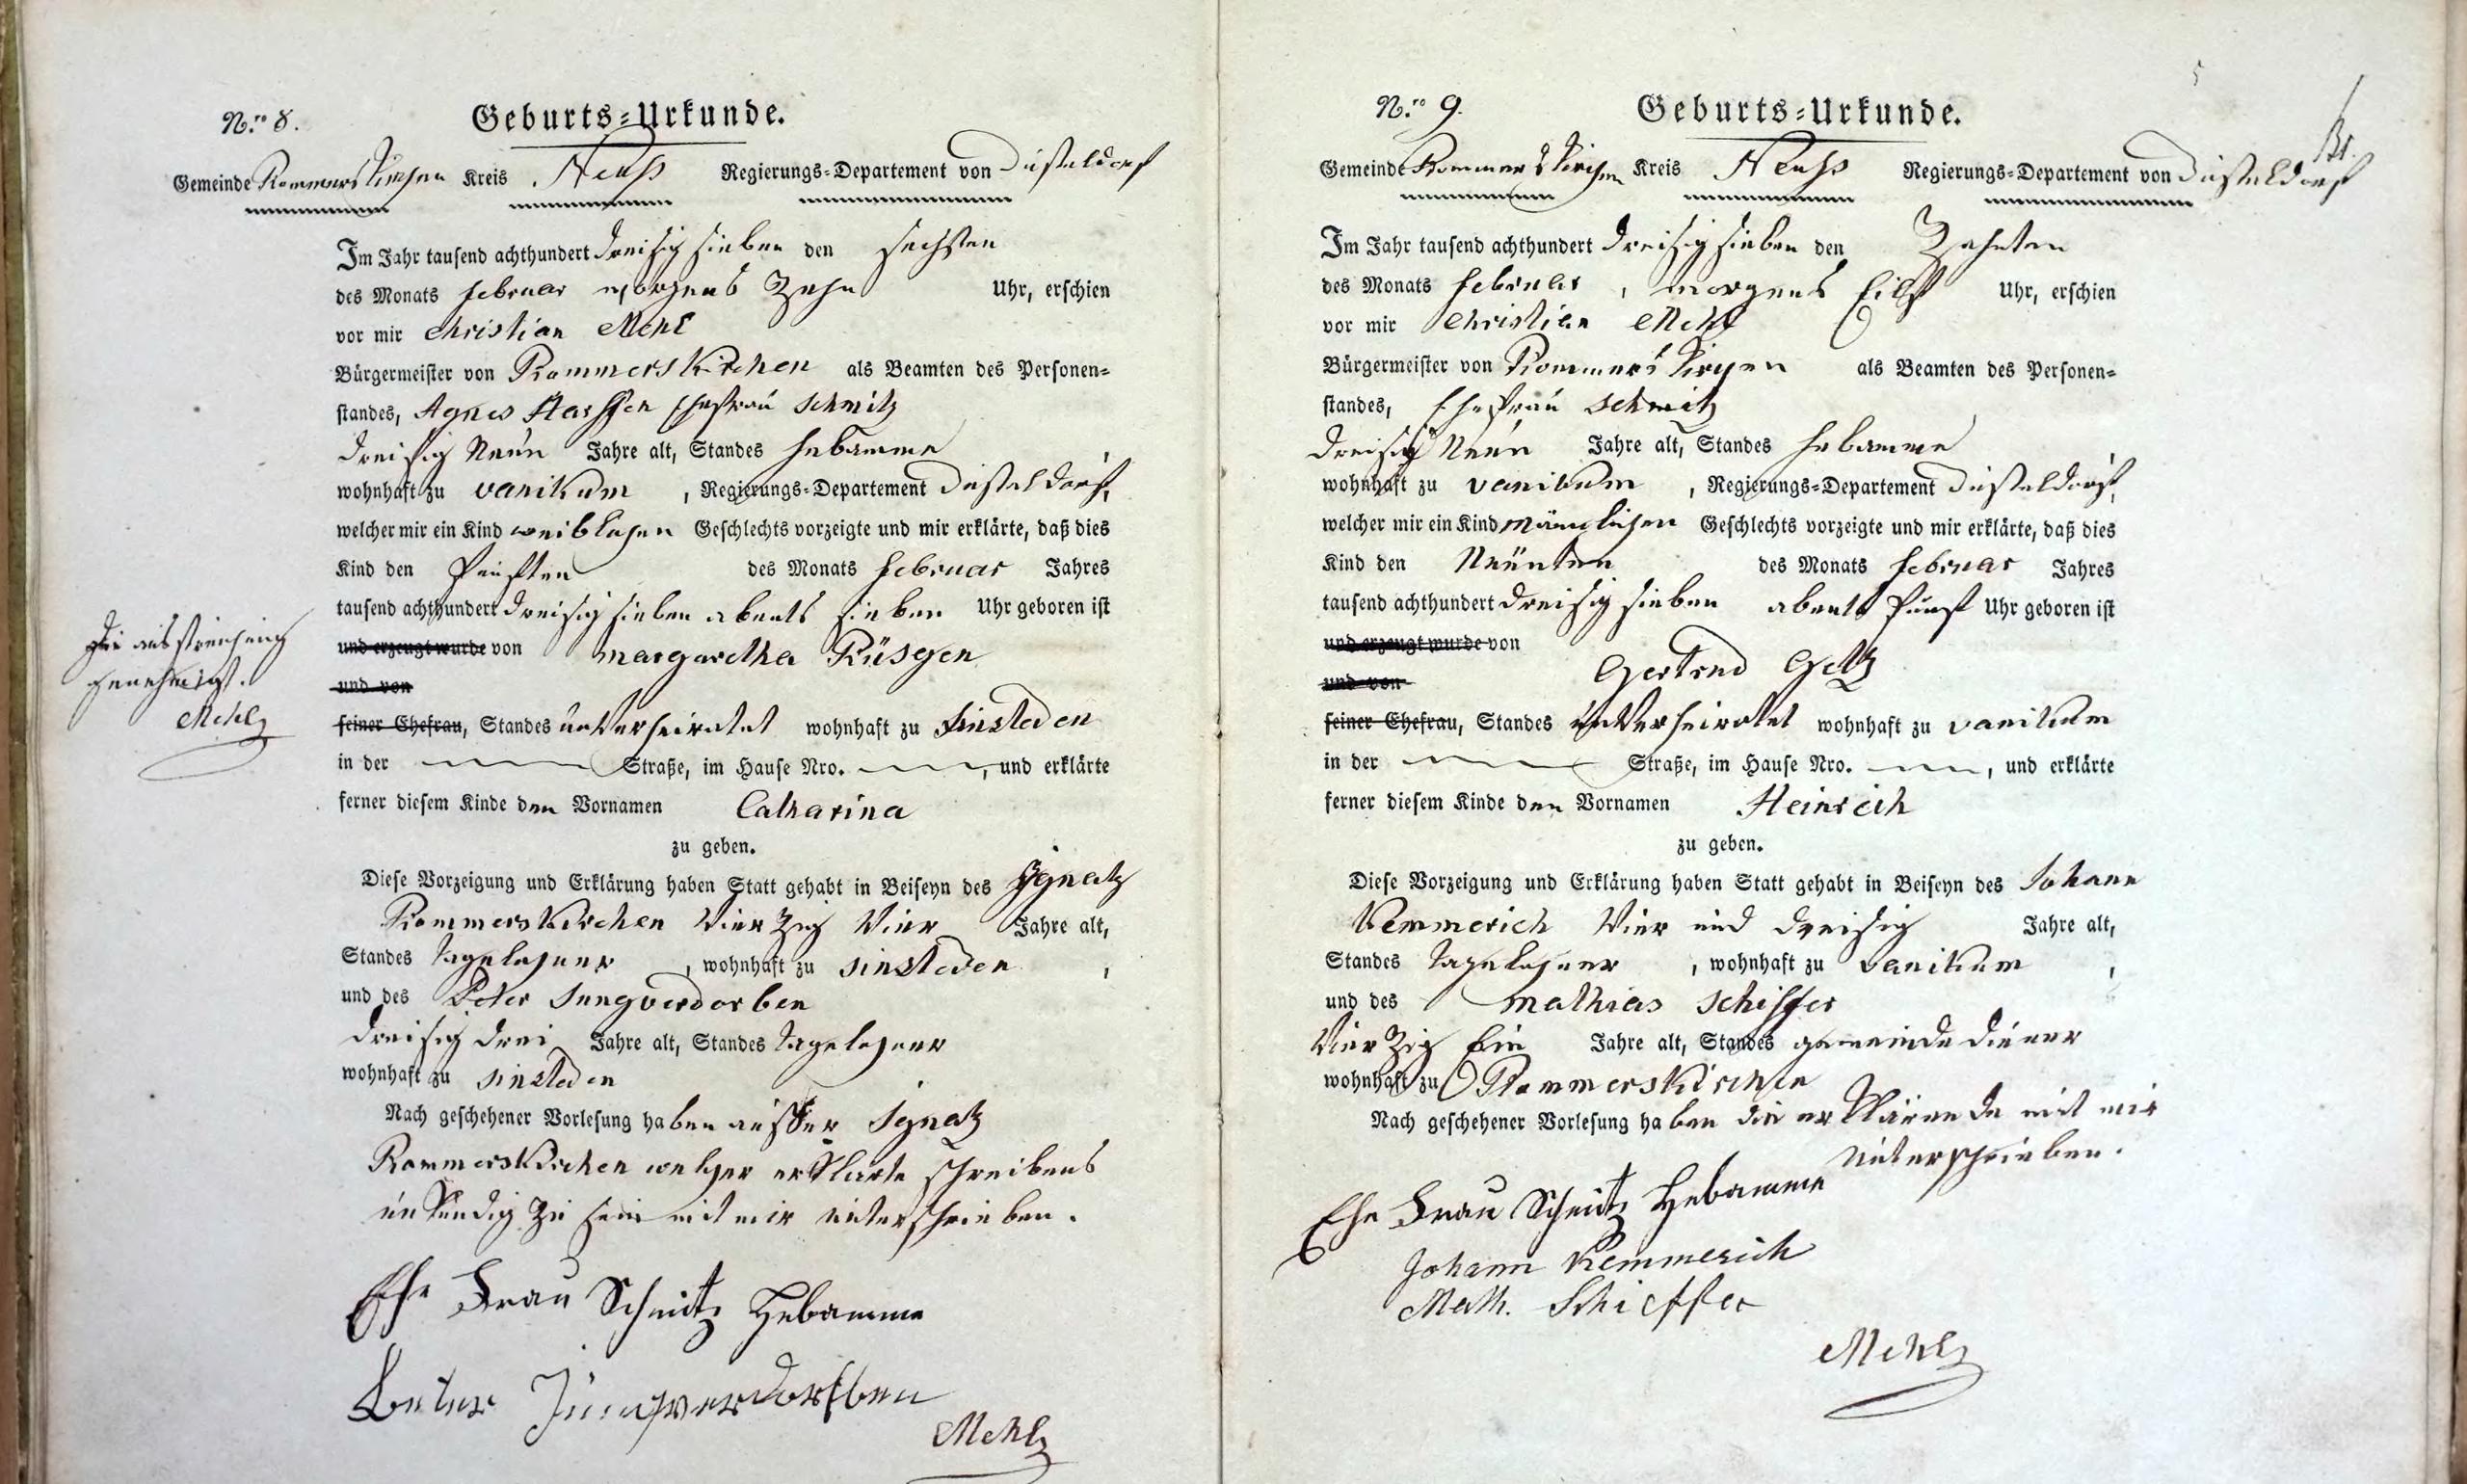 N.ro 8.
Geburts=Urkunde.
Gemeinde Rommerskirchen Kreis Neuß Regierungs=Departement von Düsseldorf
Im Jahr tausend achthundert dreisig sieben den sechsten
des Monats februar morgens Zehn Uhr, erschien
vor mir Christian Mehl
Bürgermeister von Rommerskirchen als Beamten des Personen=
standes, Agnes Ehefrau Schmitz
dreisig Neün Jahre alt, Standes Hebamme
wohnhaft zu vanikum, Regierungs=Departement Düsseldorf,
welcher mir ein Kind weiblichen Geschlechts vorzeigte und mir erklärte, daß dies
Kind den fünften des Monats februar Jahres
tausend achthundert dreisig sieben abents sieben Uhr geboren ist
und erzeugt wurde von Margaretha Rüsgen
und von
seiner Ehefrau, Standes unverheiratet wohnhaft zu Sinsteden
in der Straße, im Hause Nro. , und erklärte
ferner diesem Kinde den Vornamen Catharina
zu geben.
Diese Vorzeigung und Erklärung haben Statt gehabt in Beiseyn des Ignatz
Rommerskirchen Vierzig Vier Jahre alt,
Standes Tagelöhner, wohnhaft zu sinsteden,
und des Peter Jungverdorben
dreisig drei Jahre alt, Standes Tagelöhner
wohnhaft zu sinsteden
Nach geschehener Vorlesung haben ausser Ignatz
Rommerskirchen welcher erklarte schreibens
unkundig zu sein mit mir unterschrieben.
Ehe Frau Schmitz Hebamme
Peter Jungverdorben
Mehl
Die ausstreichung
genehmigt.
Mehl
N.ro 9.
Geburts=Urkunde.
Gemeinde Rommerskirchen Kreis Neuß Regierungs=Departement von Düsseldorf
Im Jahr tausend achthundert dreisig sieben den Zehnten
des Monats februar, morgens Eilf Uhr, erschien
vor mir Christian Mehl
Bürgermeister von Rommerskirchen als Beamten des Personen=
standes, Ehefrau Schmitz
dreisig Neün Jahre alt, Standes Hebamme
wohnhaft zu vanikum, Regierungs=Departement Düsseldorf,
welcher mir ein Kind männlichen Geschlechts vorzeigte und mir erklärte, daß dies
Kind den Neünten des Monats februar Jahres
tausend achthundert dreisig sieben abents fünf Uhr geboren ist
und erzeugt wurde von Gertrud Getz
und von
seiner Ehefrau, Standes unverheiratet wohnhaft zu vanikum
in der Straße, im Hause Nro. , und erklärte
ferner diesem Kinde den Vornamen Heinrich
zu geben.
Diese Vorzeigung und Erklärung haben Statt gehabt in Beiseyn des Johann
Kemmerich Vier und dreisig Jahre alt,
Standes Tagelöhner, wohnhaft zu vanikum,
und des Mathias Schiffer
Vierzig Ein Jahre alt, Standes gemeinde diener
wohnhaft zu Rommerskirchen
Nach geschehener Vorlesung haben die erklärende mit mir
unterschrieben.
Ehe Frau Schmitz Hebamme
Johann Kemmerich
Math. Schieffer
Mehl